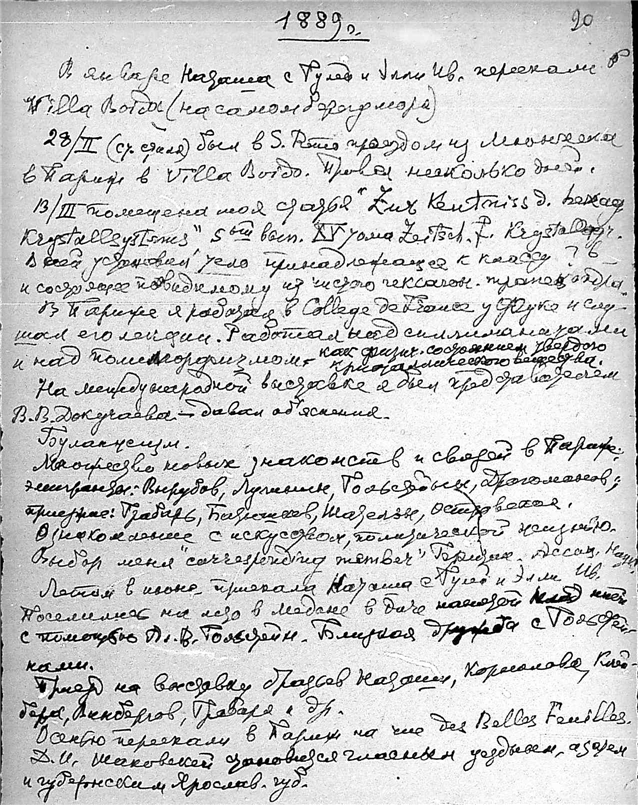 1889 г.
20
В январе Наташа с Гулей и Элли Ив. переехали в
Villa Boido (на самом берегу моря)
28/II (ст. стиля) был в S. Remo проездом из Мюнхена
в Париж в Villa Boido. Провел несколько дней.
13/III помещена моя статья "Zur Kentniss d. hexag
Krystallsystems" 5ый вып. XV тома Zeitsch. f. Krystallogr.
В ней установил тело принадлежащее к классу
и состоящее повидимому из чистого гексагон.
В Париже я работал в College de France у Фуке и слу-
шал его лекции. Работал над силлиманитами
и над полиморфизмом - как физич. состоянием твердого
кристаллического вещества.
На международной выставке я был представителем
В. В. Докучаева - давал об'яснения.
Буланжизм.
Множество новых знакомств и связей в Париже:
эмигранты: Вырубов, Лучинин, Гольштейн, Драгоманов;
приезжие: Грабарь, Шательэн, Островская.
Ознакомление с искусством, политической жизнью.
Выбор меня "corresponding member" Британ. Ассоц. Наук
Летом в июне приехала Наташа с Гулей и Элли Ив.
Поселились на лето в Медоне в даче
с помощью Ал. В. Гольштейн. Близкая дружба с Гольштей-
нами.
Приезд на выставку братьев Наташи, Корнилова, Клей-
бера, Винбергов, Гревса и др.
Осенью переехали в Париж на rue des Belles Feuilles.
Д. И. Шаховской становится гласным уездным, а затем
и губернским Ярослав. губ.